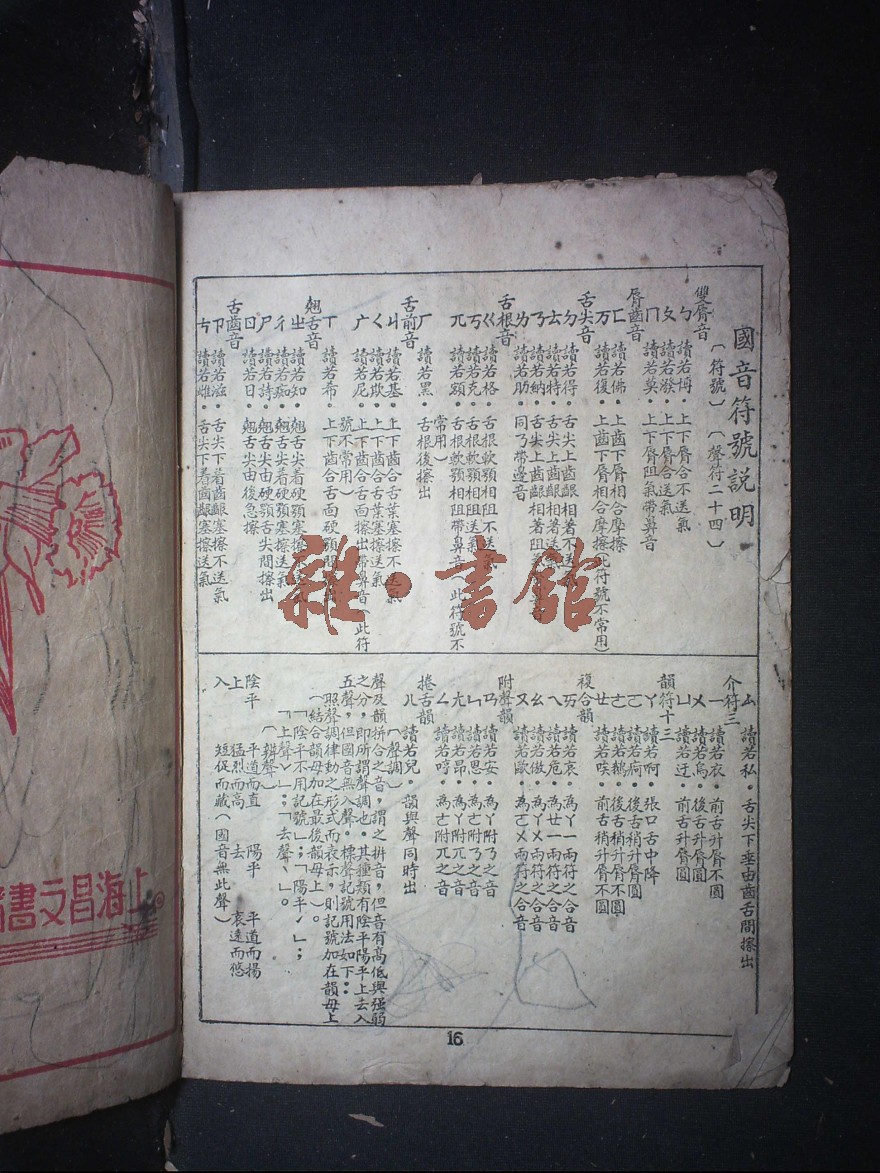 國音符號說明
〔符號〕〔聲符二十四〕
雙唇音
ㄅ 讀若博。上下脣合不送氣
ㄆ 讀若潑。上下脣合送氣
ㄇ 讀若莫。上下脣阻氣帶鼻音
脣齒音
ㄈ 讀若佛。上齒下脣相合摩擦
万 讀若復。上齒下脣相合摩擦(此符號不常用)
舌尖音
ㄉ 讀若得。舌尖上齒齦相着不送氣
ㄊ 讀若特。舌尖上齒齦相着送氣
ㄋ 讀若納。舌尖上齒齦相着阻
ㄌ 讀若助。同ㄋ帶邊音
舌根音
ㄍ 讀若格。舌根軟顎相阻不送氣
ㄎ 讀若克。舌根軟顎相阻送氣
兀 讀若額。舌根軟顎相阻帶鼻音(此符號不
常用)
ㄏ 讀若黑。舌根後擦出
舌前音
ㄐ 讀若基。上下齒合舌葉塞擦不送氣
ㄑ 讀若欺。上下齒合舌葉塞擦送氣
广 讀若尼。上下齒合舌面擦出帶鼻音(此符
號不常用)
ㄒ 讀若希。上下齒合舌面硬顎間
翹舌音
ㄓ 讀若知。翹舌尖着硬顎塞擦不
ㄔ 讀若痴。翹舌尖着硬顎塞擦送氣
ㄕ 讀若詩。翹舌尖由硬顎舌尖間擦出
ㄖ 讀若日。翹舌尖由後急擦
舌齒音
ㄗ 讀若滋。舌尖下着齒齦塞擦不送氣
ㄘ 讀若雌。舌尖下着齒齦塞擦送氣
ㄙ 讀若私。舌尖下垂由齒舌間擦出
介符三
一 讀若衣。前舌升脣不圓
ㄨ 讀若烏。後舌升脣圓
ㄩ 讀若迂。前舌升脣圓
韻符十三
ㄚ 讀若啊。張口舌中降
ㄛ 讀若痾。後舌稍升脣圓
ㄜ 讀若鵝。後舌稍升脣不圓
ㄝ 讀若唉。前舌稍升脣不圓
複合韻
ㄞ 讀若哀。為ㄚ一兩符之合音
ㄟ 讀若危。為ㄝ一兩符之合音
ㄠ 讀若傲。為ㄚㄨ兩符之合音
ㄡ 讀若歐。為ㄛㄨ兩符之合音
附聲韻
ㄢ 讀若安。為ㄚ附ㄋ之音
ㄣ 讀若恩。為ㄜ附ㄋ之音
ㄤ 讀若昂。為ㄚ附兀之音
ㄥ 讀若哼。為ㄜ附兀之音
捲舌韻
ㄦ 讀若兒。韻與聲同時出
〔聲調〕
聲及韻拼合之音,謂之拼音,但音有高低與強弱
之分,即所謂聲調也。其種類有陰平陽平上去入
五聲,但國音無入聲。標聲記號用法如下:
照聲調律動之形式而表示,則記號加在韻母上
(結合韻母加在最後韻母上)。
「陰平不用記號」;「陽平ˊ」;
「上聲ˇ」;「去聲ˋ」。
〔辨聲〕
陰平 平道而直 陽平 平道而揚
上 猛烈而高 去 哀遠而悠
入 短促而藏(國音無此聲)
16
上海昌文書
雜·書館